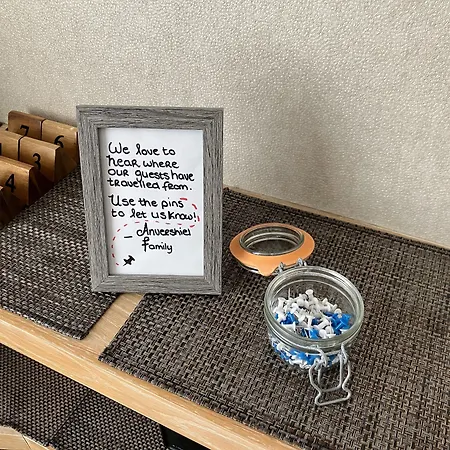 We love to
hear where
our guests have
travelled from.
Use the pins
to let us know!
- Anvershiel
family
7
2
3
4